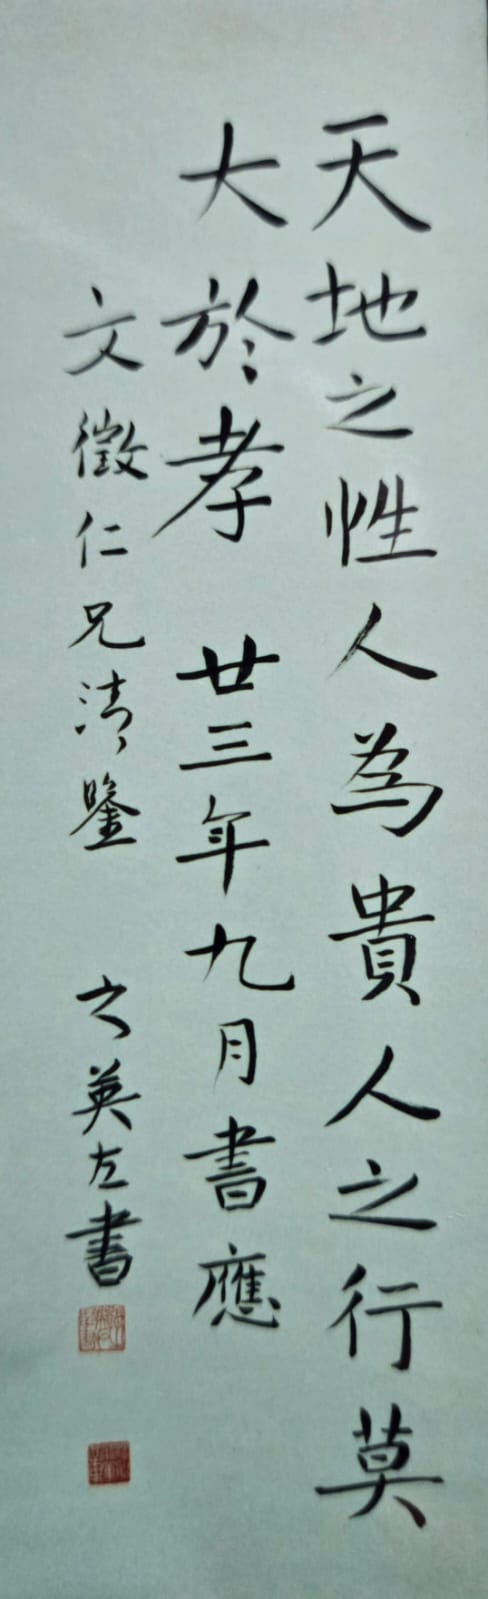 天地之性人為貴人之行莫
大於孝 廿三年九月書應
文徵仁兄清鑒 之英左書